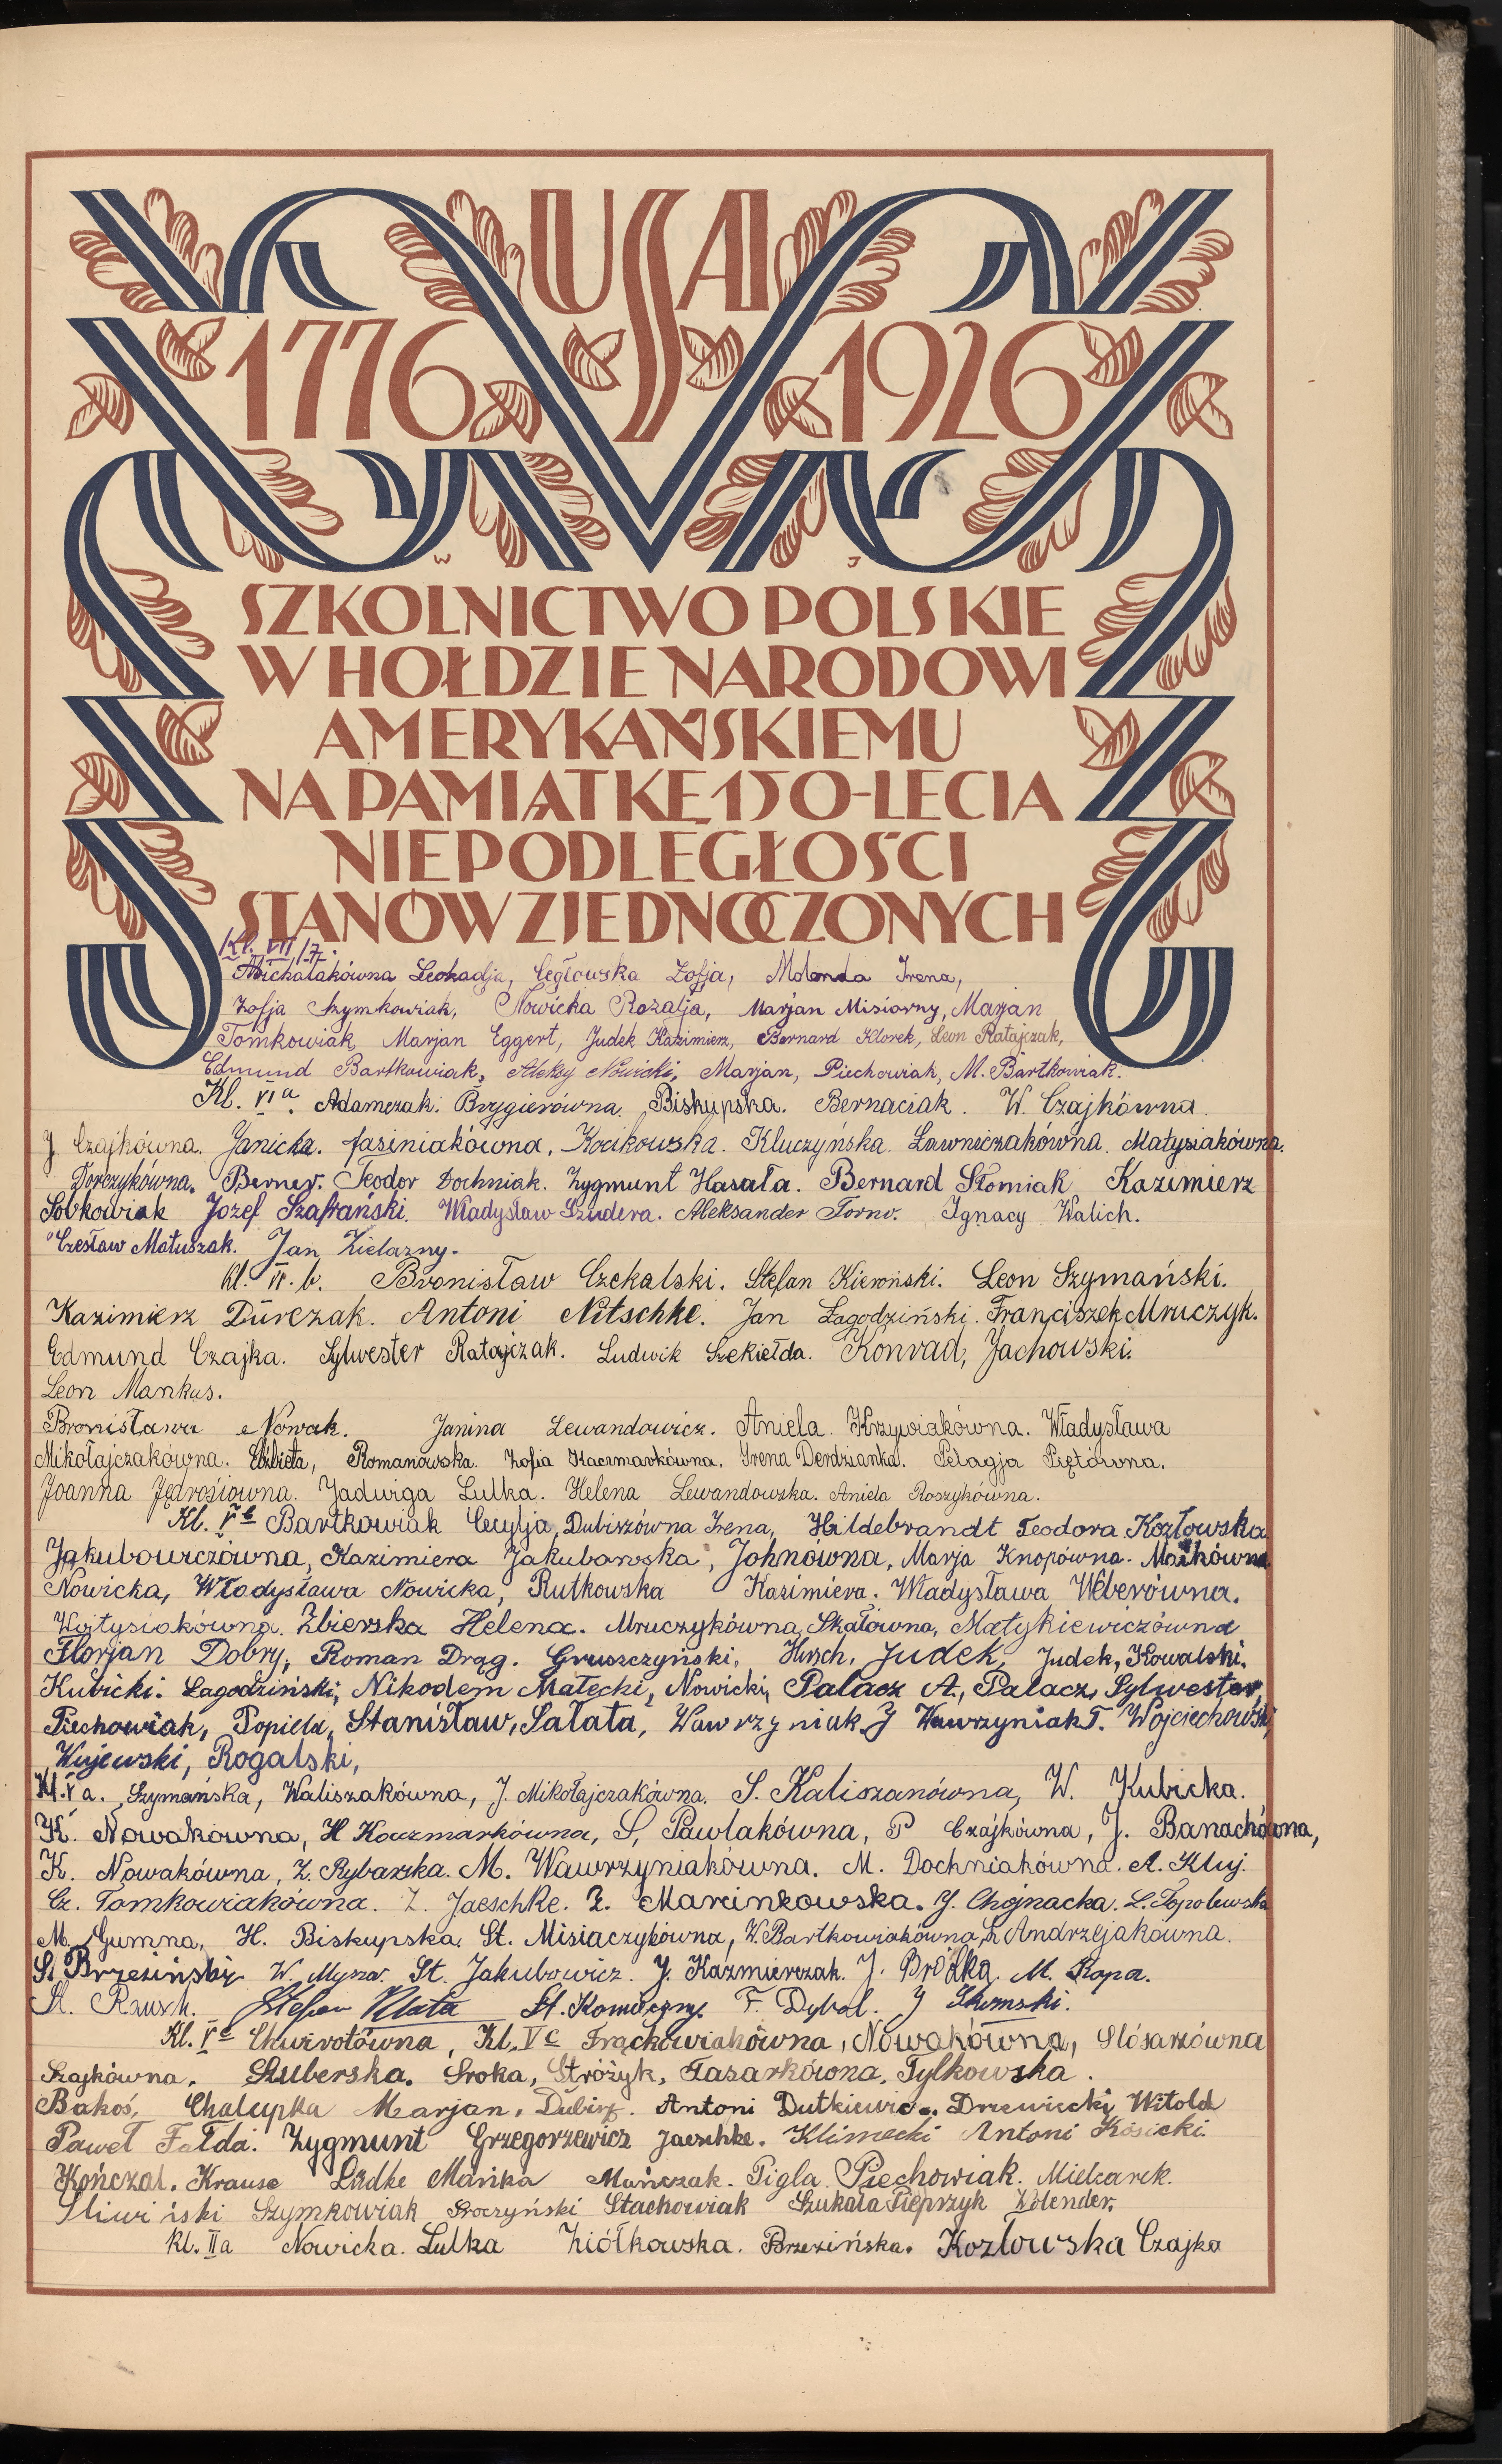 USA
1776 1926
W J
SZKOLNICTWO POLSKIE
W HOŁDZIE NARODOWI
AMERYKAŃSKIEMU
NA PAMIĄTKĘ 150-LECIA
NIEPODLEGŁOŚCI
STANÓW ZJEDNOCZONYCH
Kl. VII
Michalakówna Leokadja, Cegłowska Zofja, Molenda Irena,
Zofja Szymkowiak, Nowicka Rozalja, Marjan Misiorny, Marjan
Tomkowiak, Marjan Eggert, Judek Kazimierz, Bernard Klorek, Leon Ratajczak,
Edmund Bartkowiak, Aleksy Nowicki, Marjan, Piechowiak, M. Bartkowiak.
Kl. VI a. Adamczak. Brygierówna. Biskupska. Bernaciak. W. Czajkówna.
J. Czajkówna. Janicka. Jasiniakówna. Kocikowska. Kluczyńska. Ławniczakówna. Matysiakówna.
Torczykówna. Berner. Teodor Dochniak. Zygmunt Hasała. Bernard Słomiak Kazimierz
Sobkowiak Józef Szafrański. Władysław Szudera. Aleksander Torno. Ignacy Walich.
Czesław Matuszak. Jan Zielazny.
Kl. VI. b. Bronisław Czekalski. Stefan Kieroński. Leon Szymański.
Kazimierz Durczak. Antoni Nitschke. Jan Łagodziński. Franciszek Mruczyk.
Edmund Czajka. Sylwester Ratajczak. Ludwik Szekiełda. Konrad, Jachowski.
Leon Mankus.
Bronisława Nowak. Janina Lewandowicz. Aniela Krzywiakówna. Władysława
Mikołajczakówna. Elżbieta, Romanowska. Zofia Kaczmarkówna. Irena Derdzianka. Pelagja Piętówna.
Joanna Jędrosiowna. Jadwiga Lulka. Helena Lewandowska. Aniela Roszykówna.
Kl. V b Bartkowiak Cecylja, Dubiszówna Irena, Hildebrandt Teodora Kozłowska
Jakubowiczówna, Kazimiera Jakubowska, Johnówna, Marja Knopówna. Maćkówna
Nowicka, Władysława Nowicka, Rutkowska Kazimiera. Władysława Weberówna.
Wojtysiakówna. Zbierska Helena. Mruczykówna, Skałówna, Matykiewiczówna
Florjan Dobry, Roman Drąg. Gruszczyński, Hirsch, Judek, Judek, Kowalski.
Kubicki. Łagodziński, Nikodem Małecki, Nowicki, Palacz A., Palacz, Sylwester,
Piechowiak, Popiela, Stanisław, Sałata, Wawrzyniak J Wawrzyniak T. Wojciechowski,
Wujewski, Rogalski,
Kl. V a. Szymańska, Waliszakówna, J. Mikołajczakówna. S. Kaliszanówna, W. Kubicka.
K. Nowakówna, H Kaczmarkówna, S, Pawlakówna, P Czajkówna, J. Banachówna,
K. Nowakówna, Z. Rybarzka. M. Wawrzyniakówna. M. Dochniakówna. A. Kluj.
Cz. Tomkowiakówna. Z. Jaeschke. Z. Marcinkowska. J. Chojnacka. L. Topolewska
M. Gumna, H. Biskupska. St. Misiaczykówna, W. Bartkowiakówna, S. Andrzejakówna.
St. Brzeziński W. Mysza. St. Jakubowicz. J. Kazmierczak. J. Bródka. M. Ropa.
A. Rausch. Stefan Klata St. Komoczny. F. Dybol. J
Kl. V c Chwirotówna, Kl. V c Frąckowiakówna, Nowakówna, Slósarzówna
Szajkówna. Szuberska. Sroka, Stróżyk, Tasarkówna. Tylkowska.
Bakoś, Chalupka Marjan. Dubisz. Antoni Dutkiewicz. Drzewiecki Witold
Paweł Fałda. Zygmunt Grzegorzewicz Jaeschke. Klimecki Antoni Kosicki.
Kończal. Krause Lüdke Mańka Muńczak. Pigla. Piechowiak. Mielcarek.
Śliwiński Szymkowiak Stachowiak Szukała Pieprzyk Wolender.
Kl. II a Nowicka. Lulka Ziółkowska. Brzezińska. Kozłowska Czajka